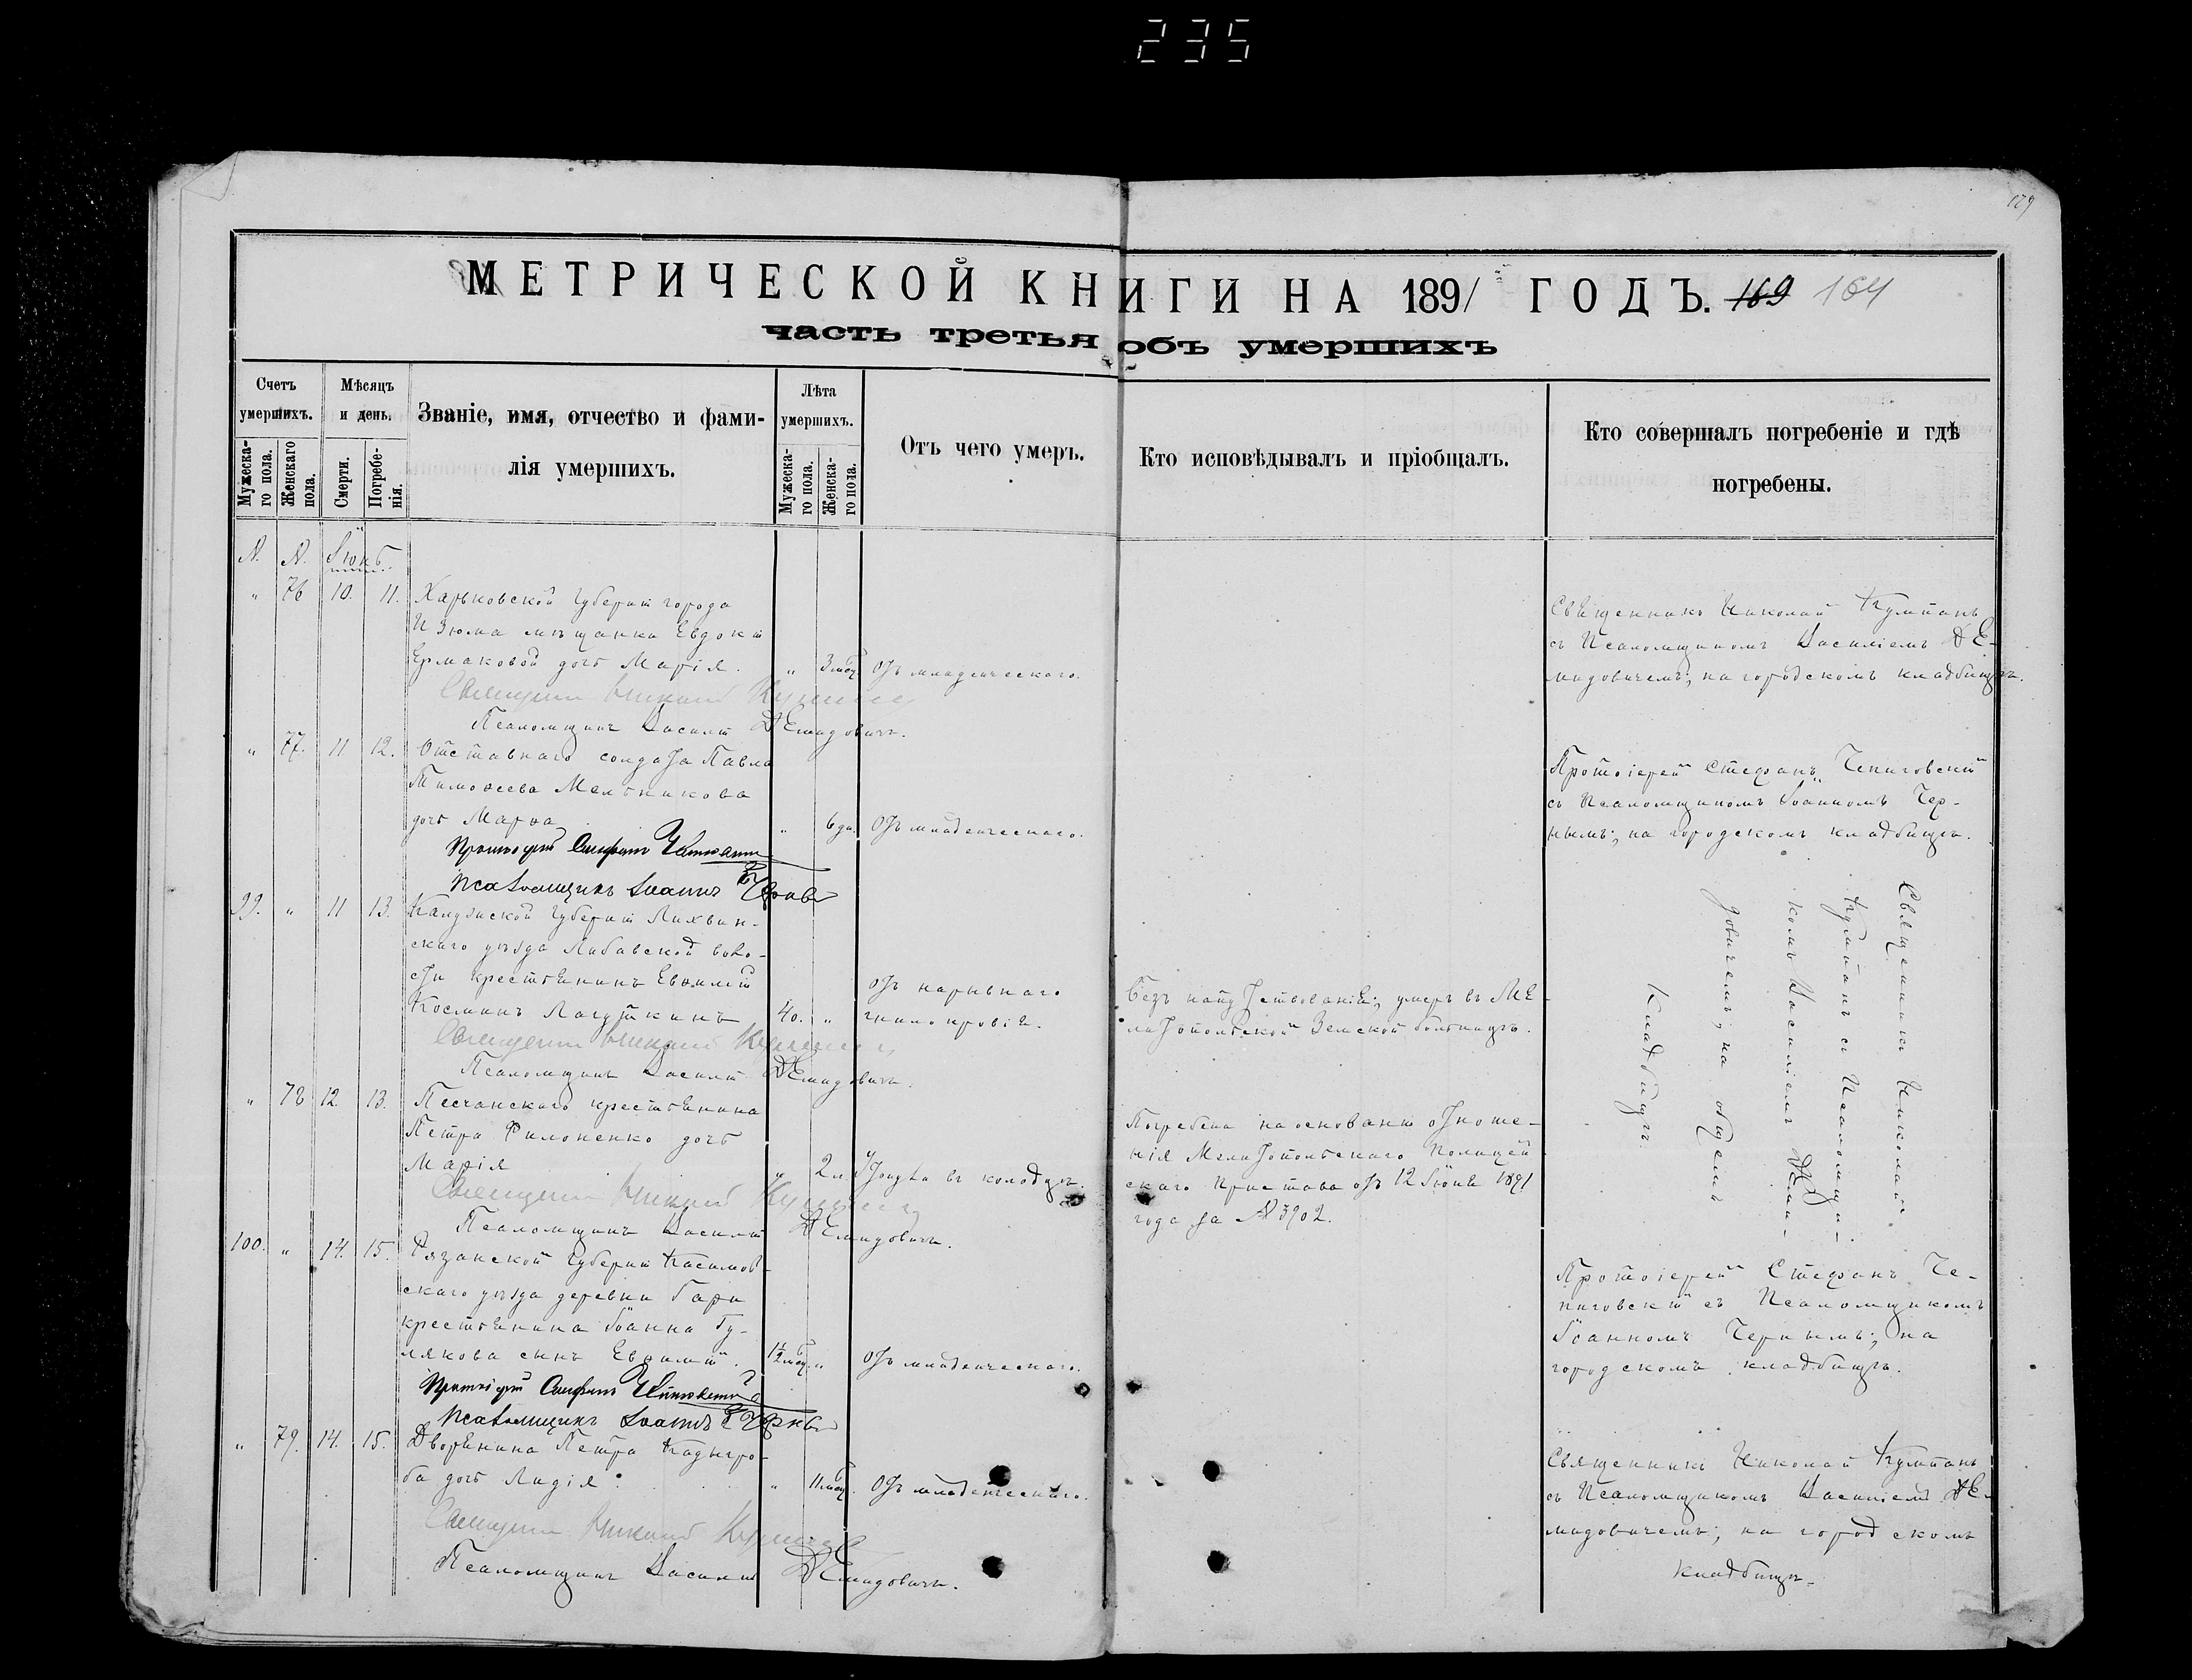 235
179
МЕТРИЧЕСКОЙ КНИГИ НА 1891 ГОДЪ. 169 164
часть третья объ умершихъ
Счетъ умершихъ.
Мужеска-
го пола.
Женскаго
пола.
Мѣсяцъ и день.
Смерти.
Погребе-
нія.
Званіе, имя, отчество и фами-
лія умершихъ.
Лѣта умершихъ.
Мужеска-
го пола.
Женска-
го пола.
Отъ чего умеръ.
Кто исповѣдывалъ и пріобщалъ.
Кто совершалъ погребеніе и гдѣ
погребены.
№. №. Іюнь.
„ 76 10. 11. Харьковской Губерніи города
Изюма мѣщанки Евдокіи
Ермаковой дочь Марія. „ 3 мѣс. Отъ младенческаго.
Священникъ Николай Кумпанъ
съ Псаломщикомъ Василіемъ Де-
мидовичемъ; на городскомъ кладбищѣ.
Священникъ Николай Кумпанъ
Псаломщикъ Василій Демидовичъ.
„ 77. 11 12. Отставнаго солдата Павла
Тимофеева Мельникова
дочь Марѳа „ 6 дн. Отъ младенческаго.
Протоіерей Стефанъ Чепиговскій
съ Псаломщикомъ Іоанномъ Чер-
нымъ; на городскомъ кладбищѣ.
Протоіерей Стефанъ
Псаломщикъ Іоаннъ
99. „ 11 13. Калужской Губерніи Лихвин-
скаго уѣзда Любавской воло-
сти крестьянинъ Евѳимій
Косминъ 40. „
отъ нарывнаго
гнилокровія.
Безъ напутствованія; умеръ въ Ме-
литопольской Земской больницѣ.
Священникъ Николай
Кумпанъ съ Псаломщи-
комъ Василіемъ Деми-
довичемъ; на общемъ
кладбищѣ.
Священникъ Николай Кумпанъ
Псаломщикъ Василій Демидовичъ.
„ 78 12. 13. Песчанскаго крестьянина
Петра Филоненко дочь
Марія „ 2 л. Утонула въ колодцѣ.
Погребена на основаніи отноше-
нія Мелитопольскаго Полицей-
скаго Пристава отъ 12 Іюня 1891
года за № 3902.
Священникъ Николай Кумпанъ
Псаломщикъ Василій Демидовичъ.
100. „ 14. 15. Рязанской Губерніи Касимов-
скаго уѣзда деревни Гари
крестьянина Іоанна Гу-
лякова сынъ Евѳимій. 1½ мѣс. „ Отъ младенческаго.
Протоіерей Стефанъ Че-
пиговскій съ Псаломщикомъ
Іоанномъ Чернымъ; на
городскомъ кладбищѣ.
Протоіерей Стефанъ
Псаломщикъ Іоаннъ
„ 79. 14. 15. Дворянина Петра Кадыгро-
ба дочь Лидія. „ 11 мѣс. Отъ младенческаго.
Священникъ Николай Кумпанъ
съ Псаломщикомъ Василіемъ Де-
мидовичемъ; на городскомъ
кладбищѣ.
Священникъ Николай Кумпанъ
Псаломщикъ Василій Демидовичъ.